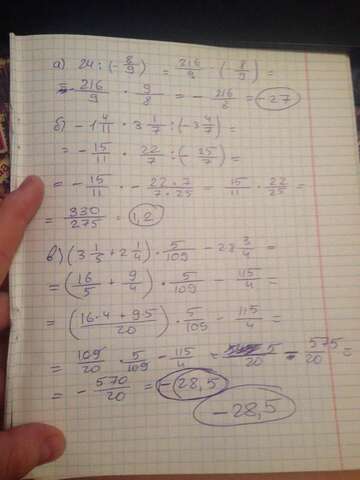 а) 24 : (-8/9) = 216/9 : (-8/9) =
= -216/9 · 9/8 = -216/8 = -27
б) -1 4/11 · 3 1/7 : (-3 4/7) =
= -15/11 · 22/7 : (-25/7) =
= -15/11 · -22·7/7·25 = 15/11 · 22/25 =
= 330/275 = 1,2
в) (3 1/5 + 2 1/4) · 5/109 - 28 3/4 =
= (16/5 + 9/4) · 5/109 - 115/4 =
= (16·4+9·5/20) · 5/109 - 115/4 =
= 109/20 · 5/109 - 115/4 = 5/20 - 575/20 =
= -570/20 = -28,5
-28,5